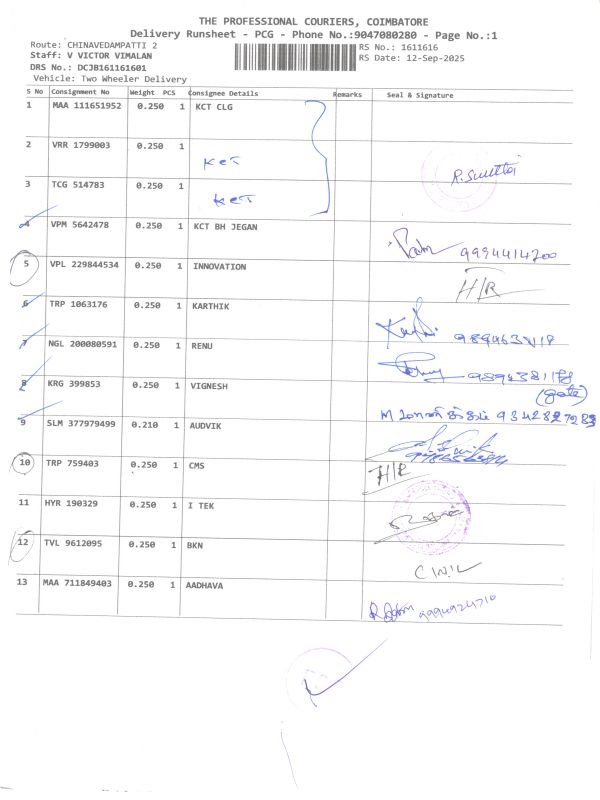 THE PROFESSIONAL COURIERS, COIMBATORE
Delivery Runsheet - PCG - Phone No.:9047080280 - Page No.:1
Route: CHINAVEDAMPATTI 2 RS No.: 1611616
Staff: V VICTOR VIMALAN RS Date: 12-Sep-2025
DRS No.: DCJB161161601
Vehicle: Two Wheeler Delivery
S No Consignment No Weight PCS Consignee Details Remarks Seal & Signature
1 MAA 111651952 0.250 1 KCT CLG
2 VRR 1799003 0.250 1
KCT
3 TCG 514783 0.250 1
KCT
4 VPM 5642478 0.250 1 KCT BH JEGAN
9994414200
5 VPL 229844534 0.250 1 INNOVATION
H/R
6 TRP 1063176 0.250 1 KARTHIK
7 NGL 200080591 0.250 1 RENU
8 KRG 399853 0.250 1 VIGNESH
(gate)
9 SLM 377979499 0.210 1 AUDVIK
10 TRP 759403 0.250 1 CMS
H/R
11 HYR 190329 0.250 1 I TEK
12 TVL 9612095 0.250 1 BKN
13 MAA 711849403 0.250 1 AADHAVA
9994924710